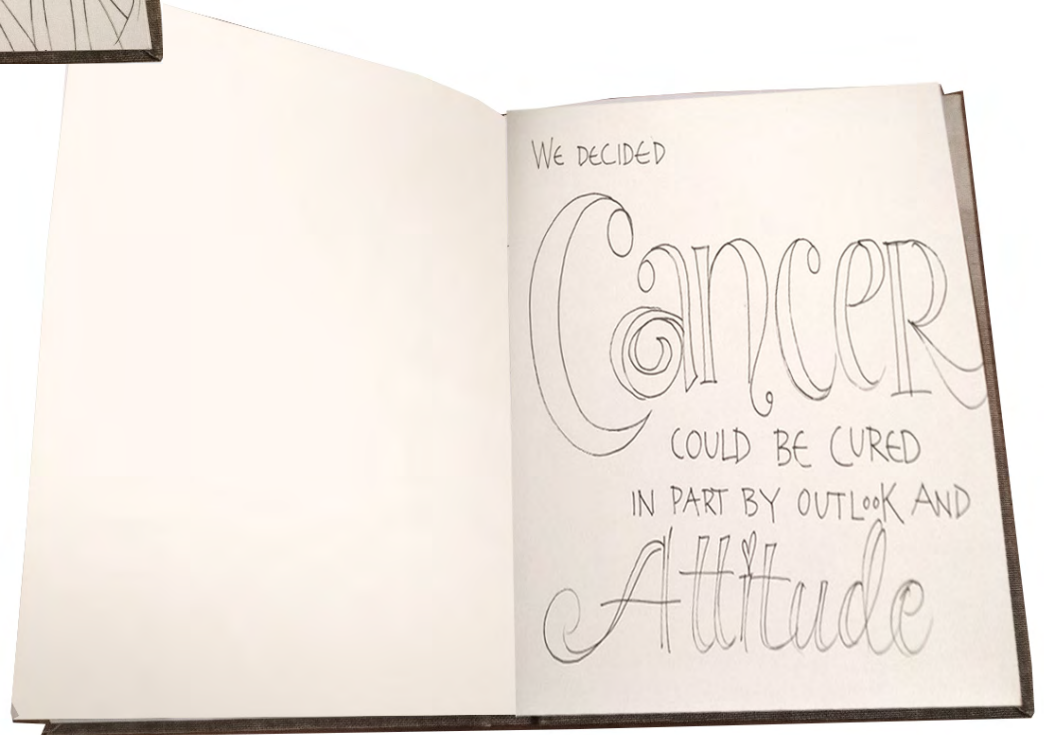 WE DECIDED
CanceR
COULD BE CURED
IN PART BY OUTLOOK AND
Attitude